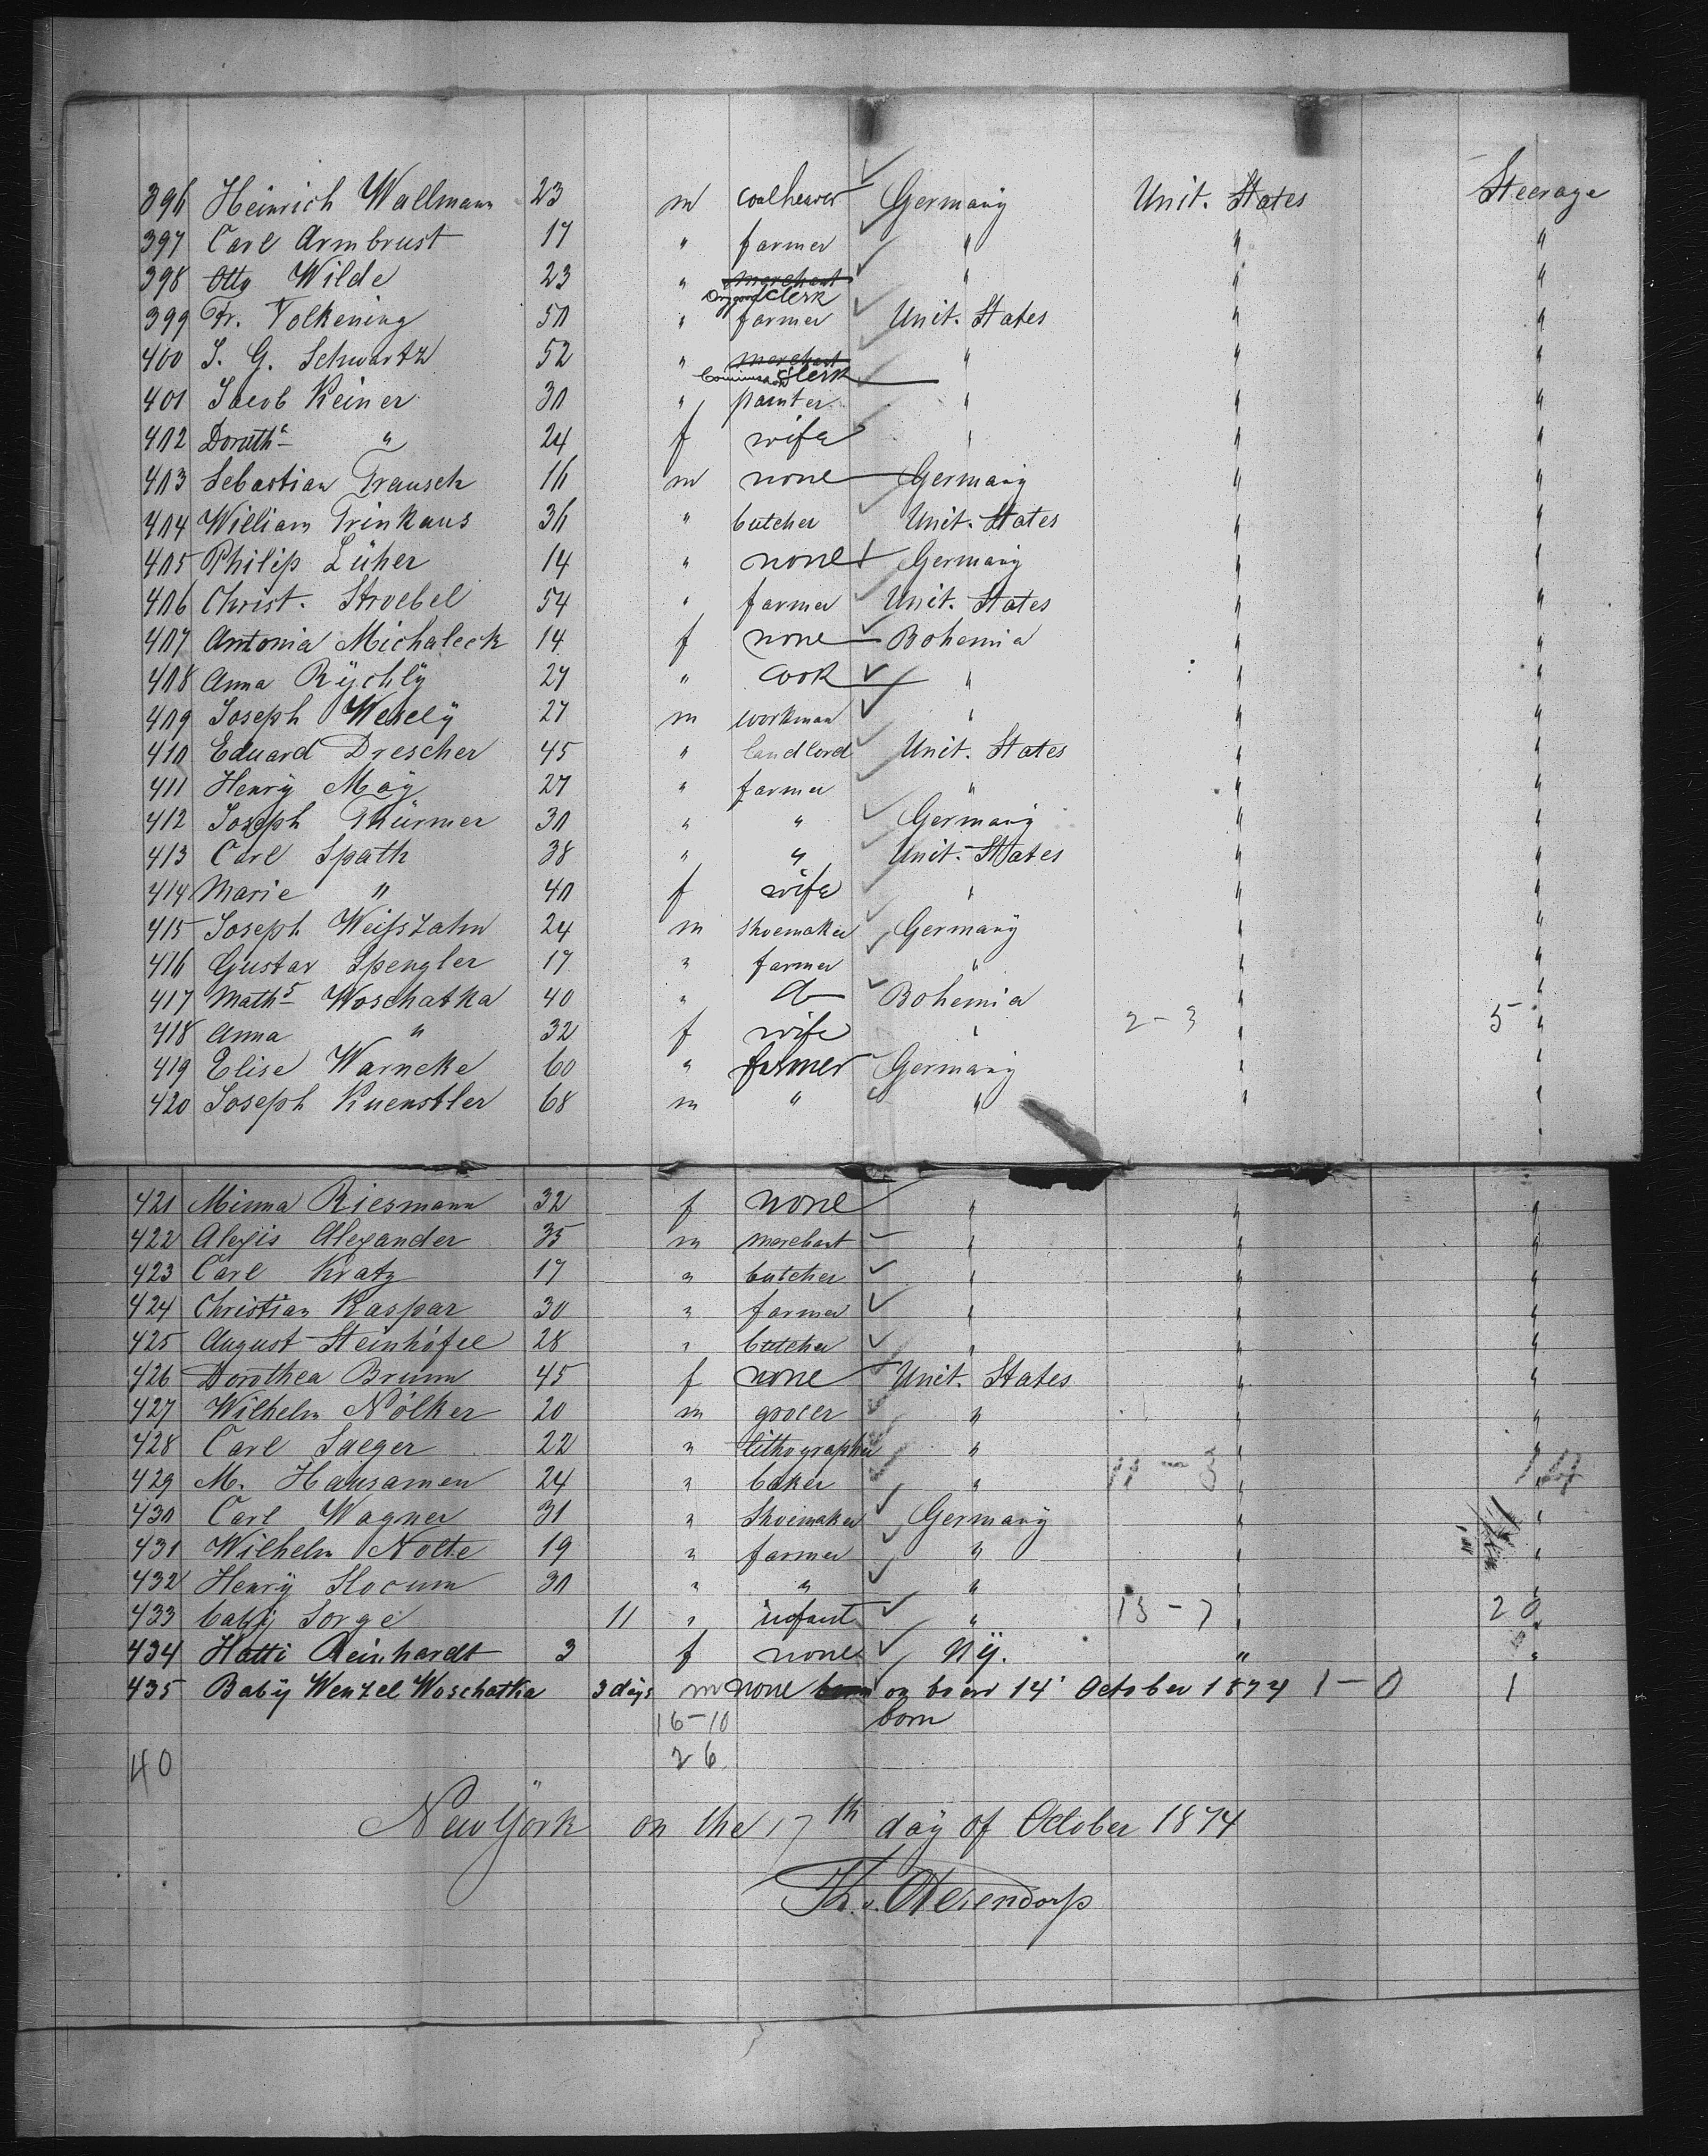 396 Heinrich Wallmann 23 m coalheaver Germany Unit. States Steerage
397 Carl Armbrust 17 " farmer " " "
398 Otto Wilde 23 " merchant " " "
clerk
399 Fr. Volkening 50 " farmer Unit. States " "
400 J. G. Schwartz 52 " merchant " " "
clerk
401 Jacob Keiner 30 " painter " " "
402 Doroth " 24 f wife " " "
403 Sebastian Trausch 16 m none Germany " "
404 William Trinkaus 36 " butcher Unit. States " "
405 Philip Lüher 14 " none Germany " "
406 Christ. Stroebel 54 " farmer Unit. States " "
407 Antonia Michaleck 14 f none Bohemia " "
408 Anna Rÿchlÿ 27 " cook " " "
409 Joseph Weselÿ 27 m workman " " "
410 Eduard Drescher 45 " landlord Unit. States " "
411 Henrÿ Maÿ 27 " farmer " " "
412 Joseph Thürmer 30 " " Germany " "
413 Carl Spath 38 " " Unit. States " "
414 Marie " 40 f wife " " "
415 Joseph Weisszahn 24 m shoemaker Germany " "
416 Gustav Spengler 17 " farmer " " "
417 Maths Woschatka 40 " do Bohemia " "
418 Anna " 32 f wife " 2-3 " 5 "
419 Elise Warneke 60 " farmer Germany " "
420 Joseph Kuenstler 68 m " " " "
421 Minna Riesmann 32 f none " " "
422 Alexis Alexander 35 m merchant " " "
423 Carl Kratz 17 " butcher " " "
424 Christian Kaspar 30 " farmer " " "
425 August Steinhöfel 28 " butcher " " "
426 Dorothea Brunn 45 f none Unit. States " "
427 Wilhelm Nölker 20 m grocer " " "
428 Carl Jaeger 22 " lithographer " " "
429 M. Hausamen 24 " baker " 11-3 " 14 "
430 Carl Wagner 31 " Shoemaker Germany " "
431 Wilhelm Nolte 19 " farmer " " "
432 Henrÿ Slocum 30 " " " " "
433 baby Sorge 11 " infant " 13-7 " 20 "
434 Hatti Reinhardt 3 f none NY. " "
435 Babÿ Wenzel Woschatka 3 days m none born on board 14 October 1874 1-0 1
16-10 born
40 26
New York on the 17th day of October 1874